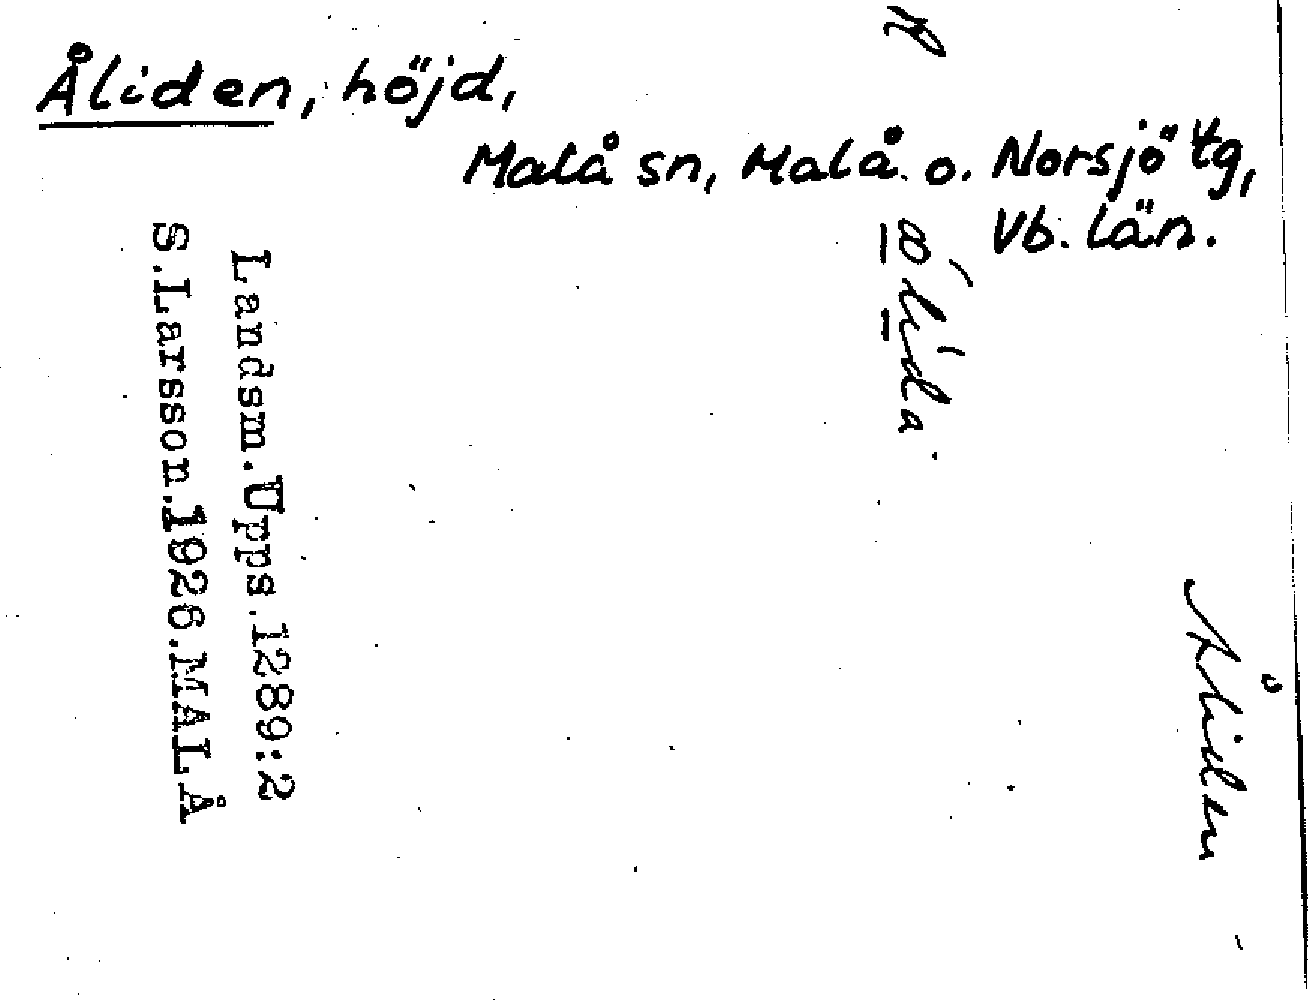 Åliden, höjd,
Malå sn, Malå o. Norsjö tg,
Vb. län.
Åliden
R
Landsm.Upps.1289:2
S.Larsson.1926.MALÅ